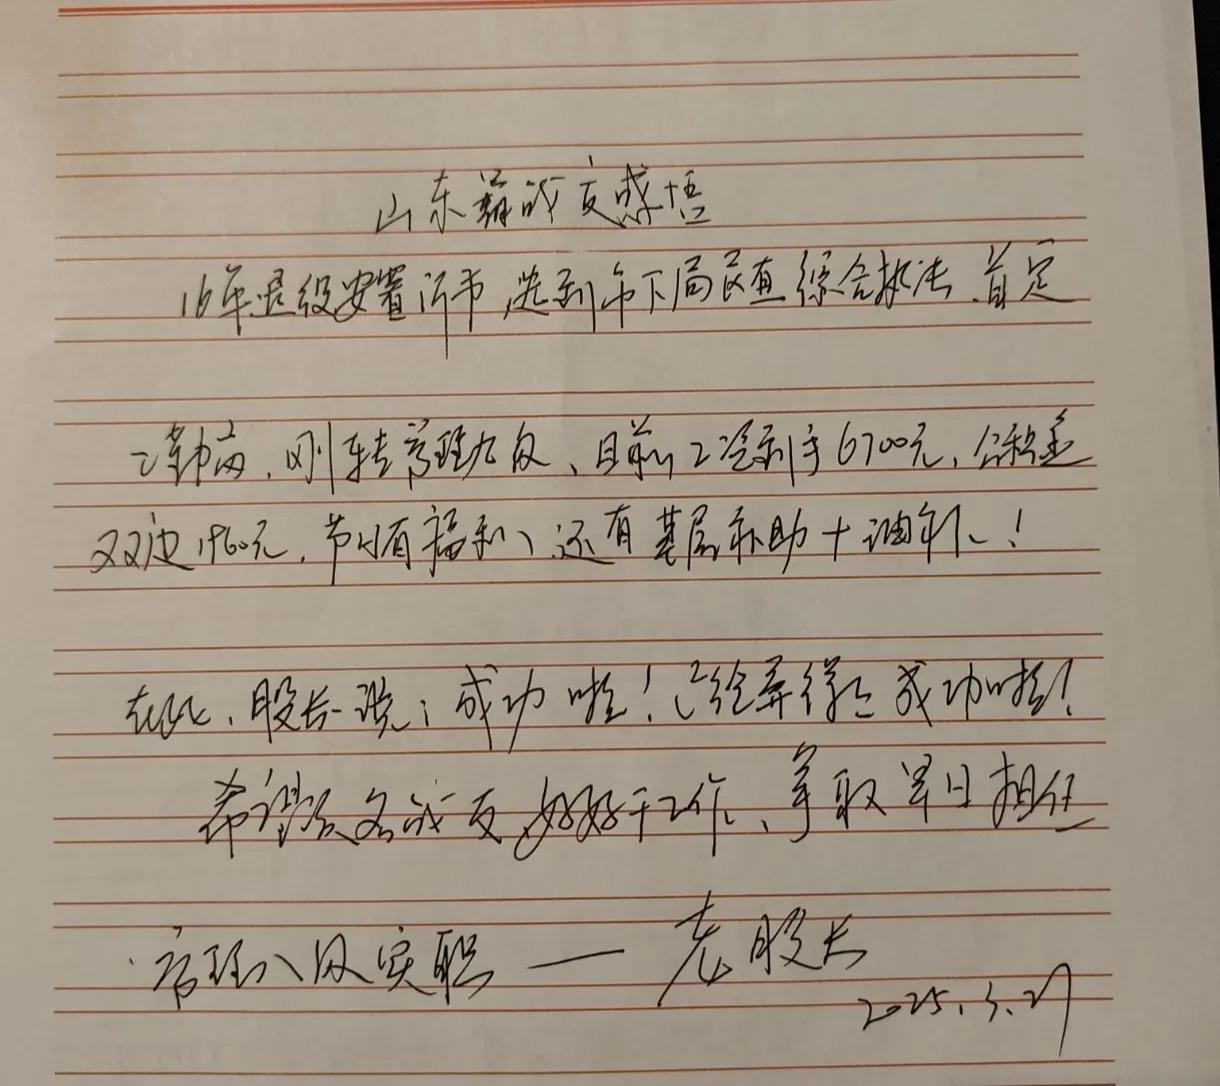 山东籍战友感悟
16年退役安置沂市,选到市下局民直综合执法、首定
工勤岗,刚转管理九级、目前工资到手6700元、公积金
双边1960元,节日有福利、还有基层补助+油补、!
在此、股长说:成功啦!已经弄得三成功啦!
希望各战友好好干工作、争取早日担任
管理八级实职——老股长
2025.3.27